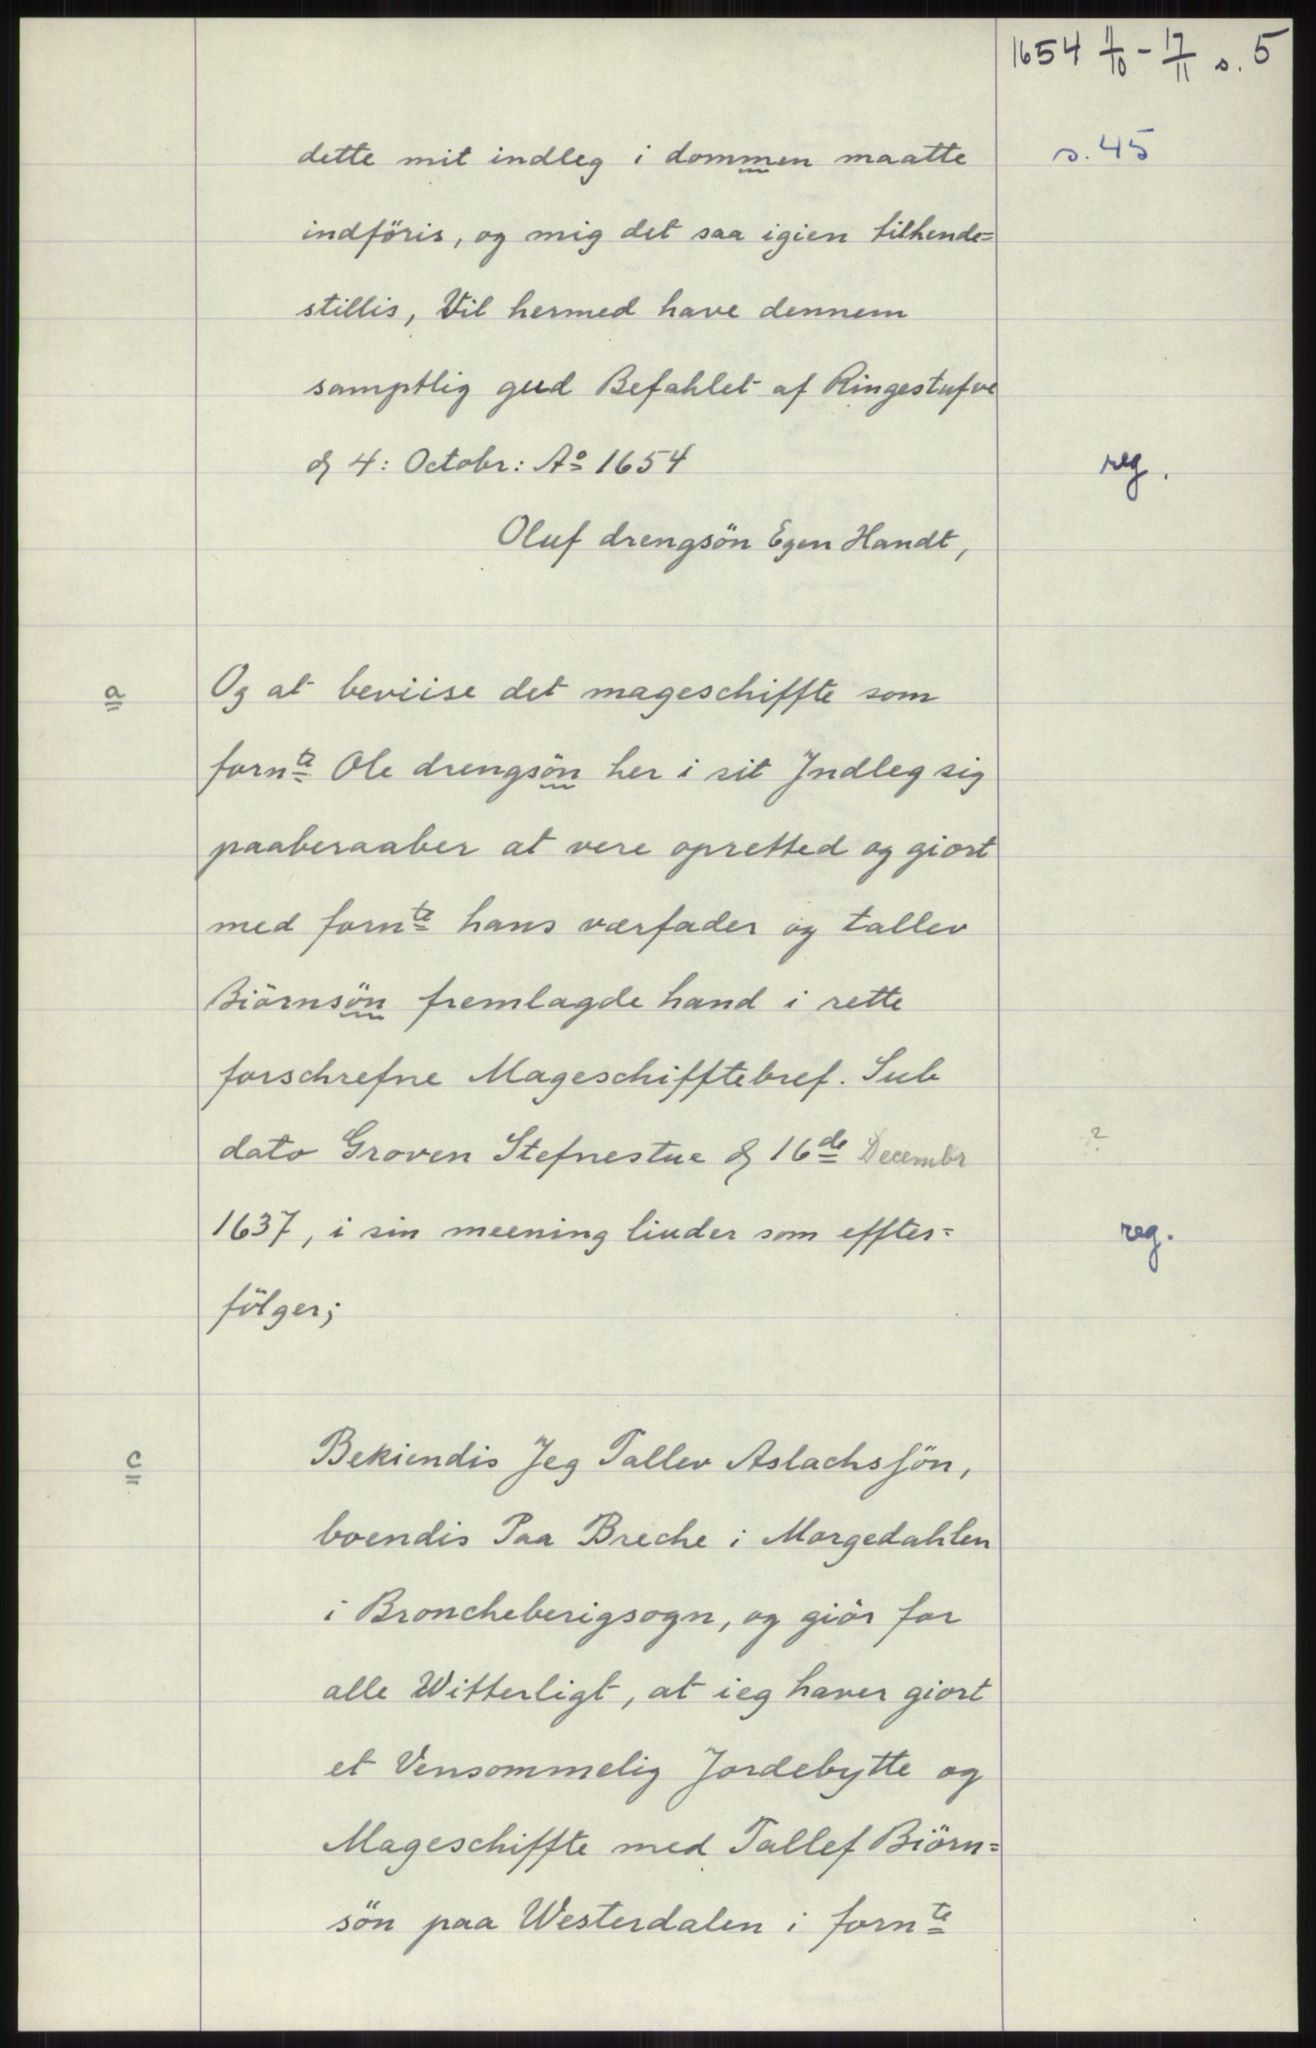 1654 11/10 - 17/11 s. 5
dette mit indleg i dommen maatte s. 45
indföris, og mig det saa igien tilhende=
stillis, Vil hermed have dennem
samptlig gud Befahlet af Ringestufve
4: Octobr: Ao 1654 reg.
Oluf drengsön Egen Handt,
a Og at beviise det mageschiffte som
fornte Ole drengsön her i sit Indleg sig
paaberaaber at vere opretted og giort
med fornte hans værfader og tallev
Biörnsön fremlagde hand i rette
forschrefne Mageschifftebref. Sub
dato Groven Stefnestue 16de Decembr ?
1637, i sin meening liuder som effter= reg.
fölger;
c Bekiendis Jeg Tallev Aslachssön,
boendis Paa Breche i Morgedahlen
i Broncheberigsogn, og giör for
alle Witterligt, at ieg haver giort
et Vensommelig Jordebytte og
Mageschiffte med Tallef Biörn=
sön paa Westerdalen i fornte